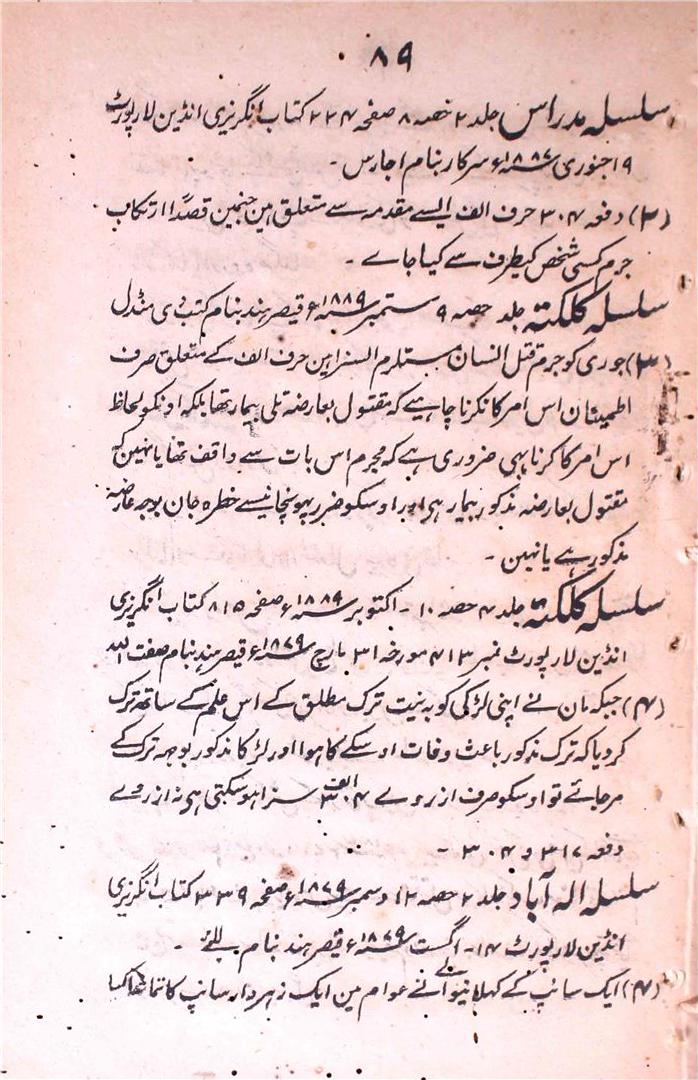 ۸۹
سلسلہ مدراس جلد ۲ حصہ ۸ صفحہ ۲۲۴ کتاب انگریزی انڈین لارپورٹ
۱۹ جنوری ۱۸۸۷ء سرکار بنام اجارس ۔
(۲) دفعہ ۳۰۴ حرف الف ایسے مقدمہ سے متعلق ہین جنمین قصداً ارتکاب
جرم کسی شخص کیطرف سے کیا جاے ۔
سلسلہ کلکتہ جلد حصہ ۹ ستمبر ۱۸۸۹ء قیصر ہند بنام کتب ڈی منڈل
(۳) جوری کو جرم قتل انسان مستلزم السزا مین حرف الف کے متعلق صرف
اطمینان اس امر کا نکرنا چاہیے کہ مقتول بعارضہ تلی بیمار تھا بلکہ اونکو لحاظ
اس امر کا کرنا بہی ضروری ہے کہ مجرم اس بات سے واقف تھا یا نہین کہ
مقتول بعارضہ مذکور بیمار ہی اور اوسکو ضرر پہونچانیسے خطرہ جان بوجہ عارضہ
مذکور ہے یا نہین ۔
سلسلہ کلکتہ جلد ۴ حصہ ۱۰ ۔ اکتوبر ۱۸۸۹ء صفحہ ۸۱۵ کتاب انگریزی
انڈین لارپورٹ نمبر ۴۱۳ مورخہ ۳۱ مارچ ۱۸۷۹ء قیصر ہند بنام صفت اللہ
(۴) جبکہ مان نے اپنی لڑکی کو بہ نیت ترک مطلق کے اس علم کے ساتھ ترک
کردیا کہ ترک مذکور باعث وفات اوسکے کا ہوا اور لڑکا مذکور بوجہ ترک کے
مرجائے تو اوسکو صرف ازروے ۳۰۴ الف سزا ہوسکتی ہی نہ ازروے
دفعہ ۳۱۷ و ۳۰۴ ۔
سلسلہ الہ آباد جلد ۲ حصہ ۱۲ دسمبر ۱۸۷۹ء صفحہ ۳۳۹ کتاب انگریزی
انڈین لارپورٹ ۱۴ ۔ اگست ۱۸۷۹ء قیصر ہند بنام ۔
(۴) ایک سانپ کے کہلانیوالے نے عوام مین ایک زہردار سانپ کا تماشا کیا